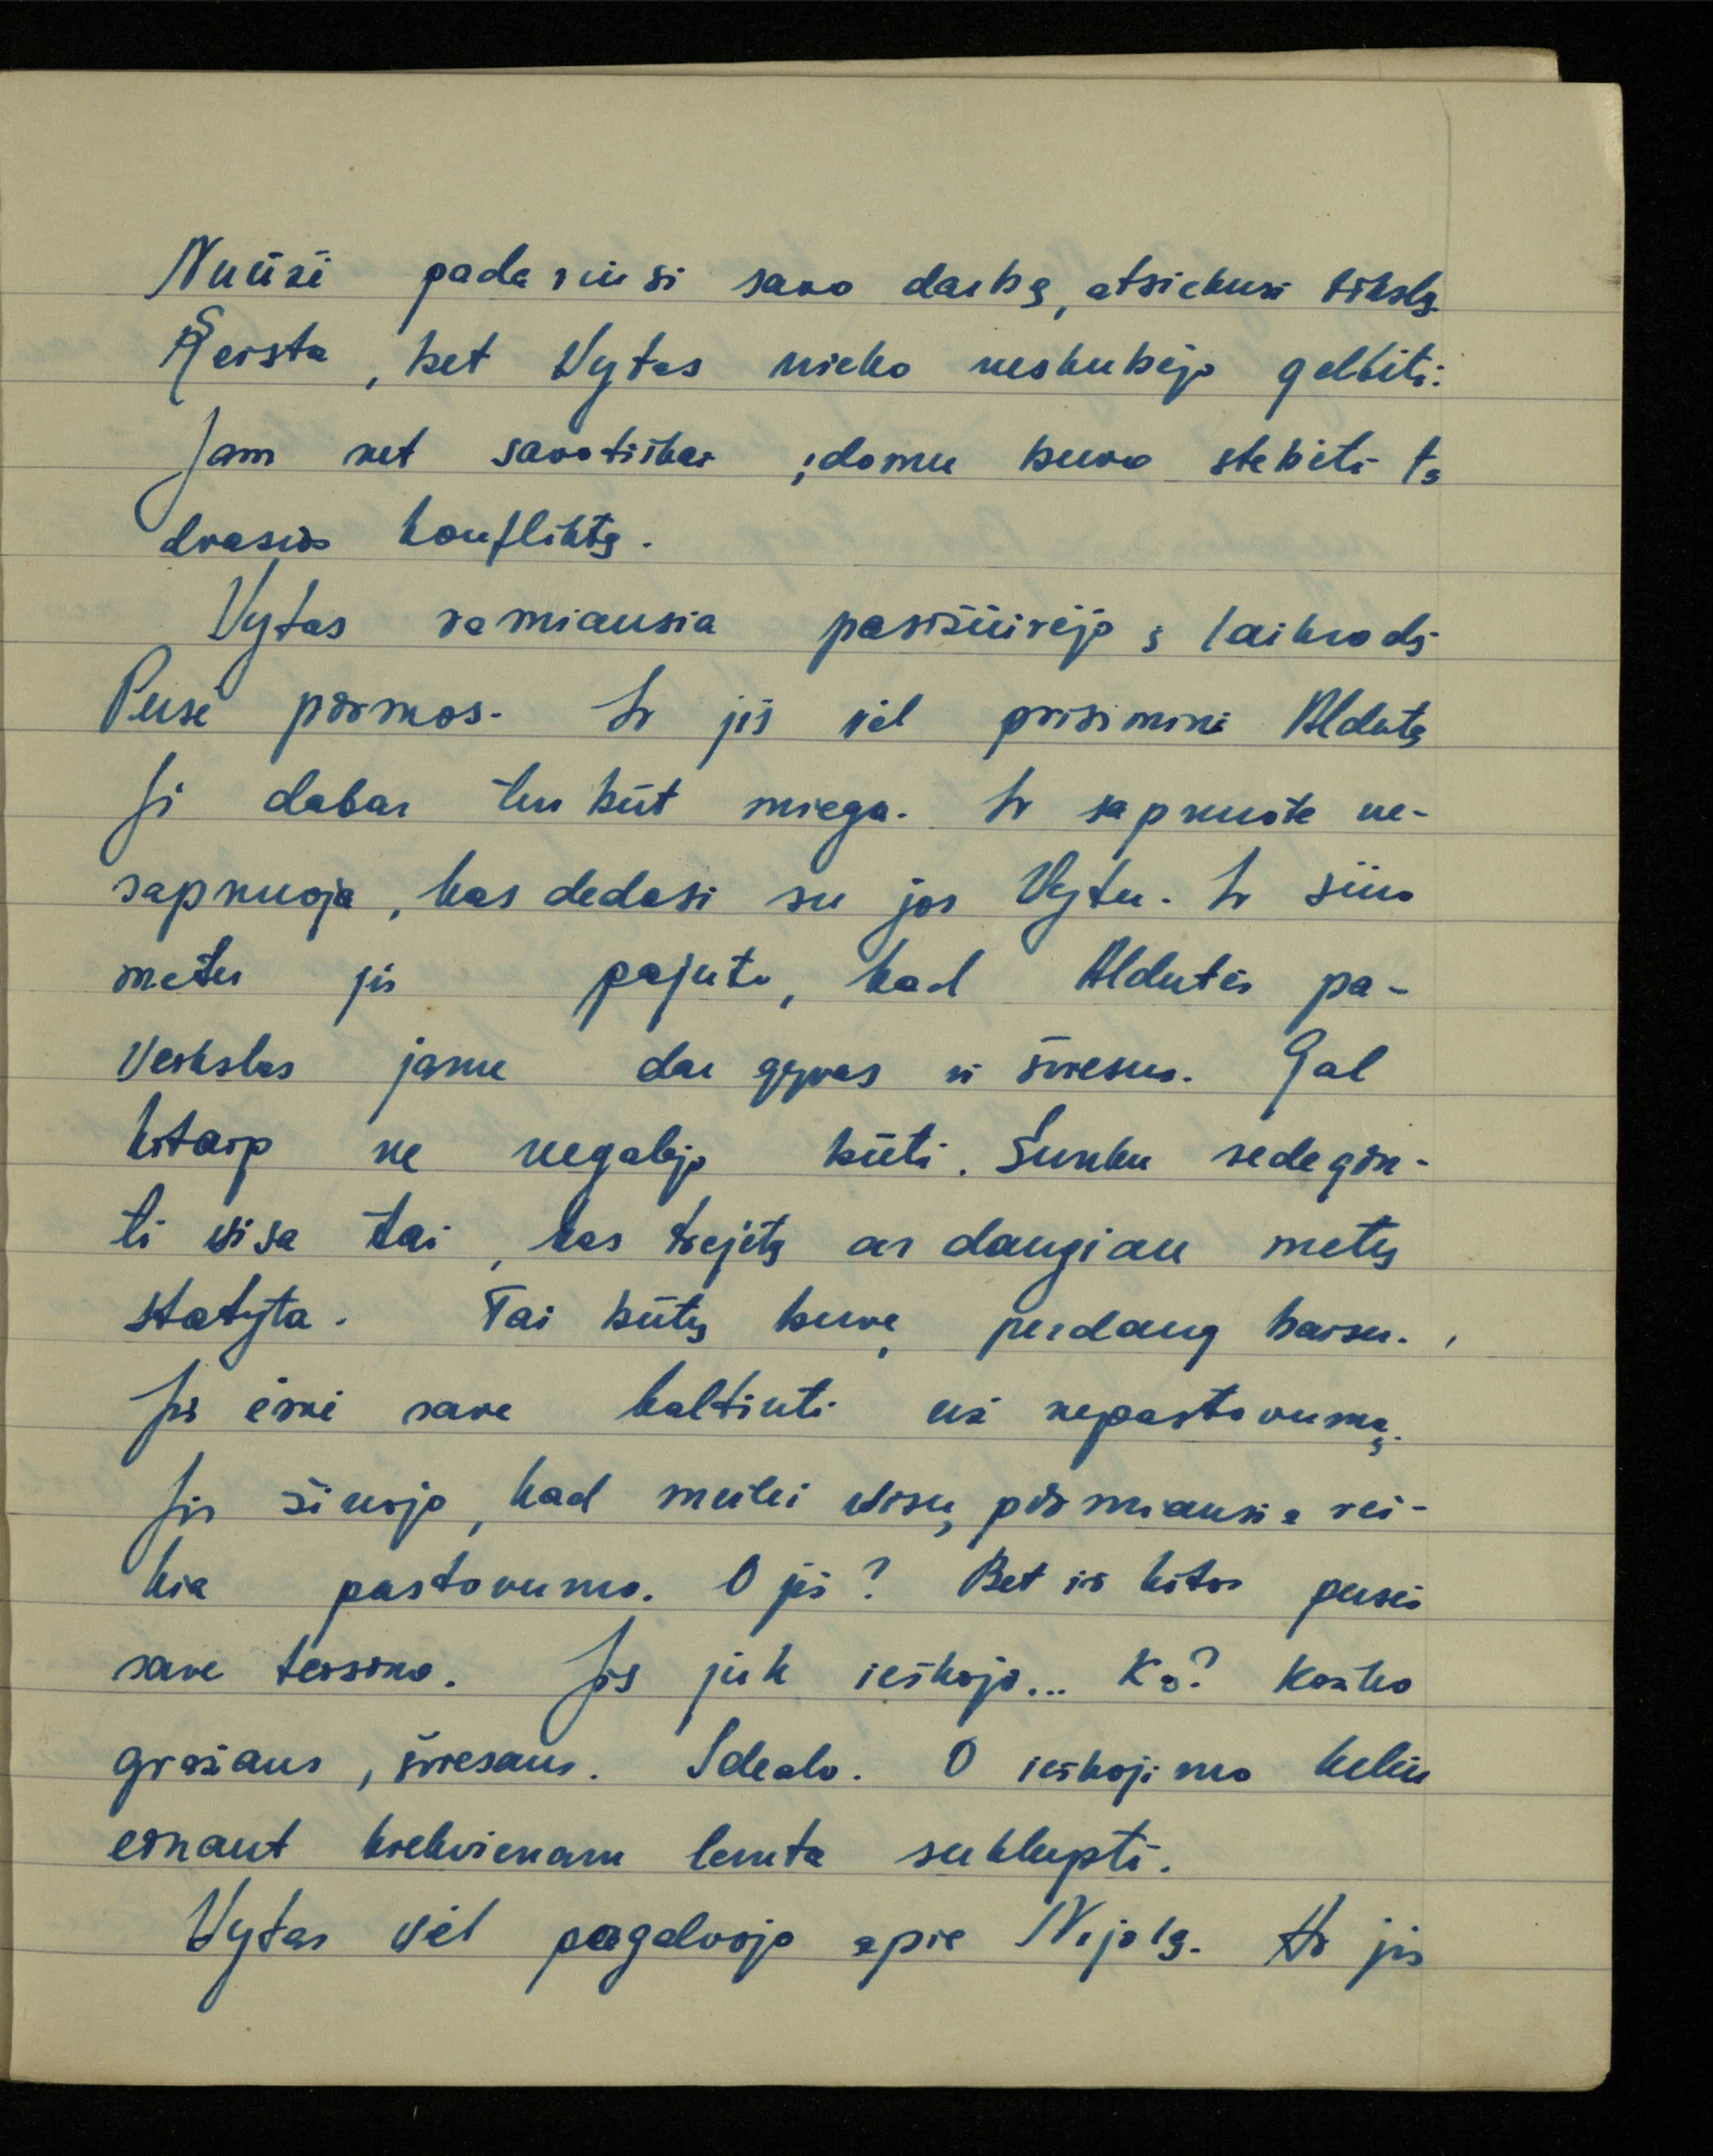 Nuėjė padariusi savo darbą, atsiekusi tikslą.
Keista, bet Vytas nieko neskubėjo gelbėti.
Jam net savotiškai įdomu buvo stebėti tą
dvasios konfliktą.
Vytas ramiausia pasižiūrėjo į laikrodį
Pusė pirmos. Ir jis vėl prisiminė Aldutę
Ji dabar turbūt miega. Ir sapnuote ne-
sapnuoja, kas dedasi su jos Vytu. Ir šiuo
metu jis pajuto, kad Aldutės pa-
veikslas jame dar gyvas ir šviesus. Gal
kitaip ne negalėjo būti. Sunku sudegin-
ti visa tai, kas trejetą ar daugiau metų
statyta. Tai būtų buvę perdaug baisu.
Jis ėmė save kaltinti už nepastovumą.
Jis žinojo, kad meilei visų pirmiausia rei-
kia pastovumo. O jis? Bet iš kitos pusės
save teisino. Jis juk ieškojo... Ko? Kažko
gražaus, šviesaus. Idealo. O ieškojimo keliu
einant kiekvienam lemta suklupti.
Vytas vėl pagalvojo apie Nijolę. Ir jis